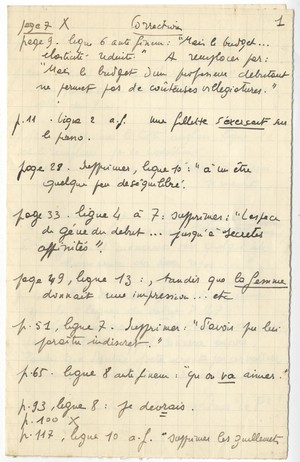 page 7 X Correction 1
page 9. ligne 6 ante finem: "Mais le budget...
élasticité réduite." A remplacer par:
"Mais le budget d'un professeur débutant
ne permet pas de coûteuses villégiatures."
p. 11. ligne 2 a.f. une fillette s'exerçant sur
le piano.
page 28. Supprimer, ligne 10: "à m'être
quelque peu déséquilibré.
page 33. ligne 4 à 7: supprimer: "L'espèce
de gêne du début... jusqu'à "secrètes
affinités".
page 49, ligne 13:, tandis que la femme
donnait une impression... etc
p. 51, ligne 7. Supprimer: "J'avais pu lui
paraître indiscret."
p. 65. ligne 8 ante finem: "Qu'on va aimer."
p. 93, ligne 8: je devrais.
p. 100 X
p. 117, ligne 10 a.f. "supprimer les guillemets